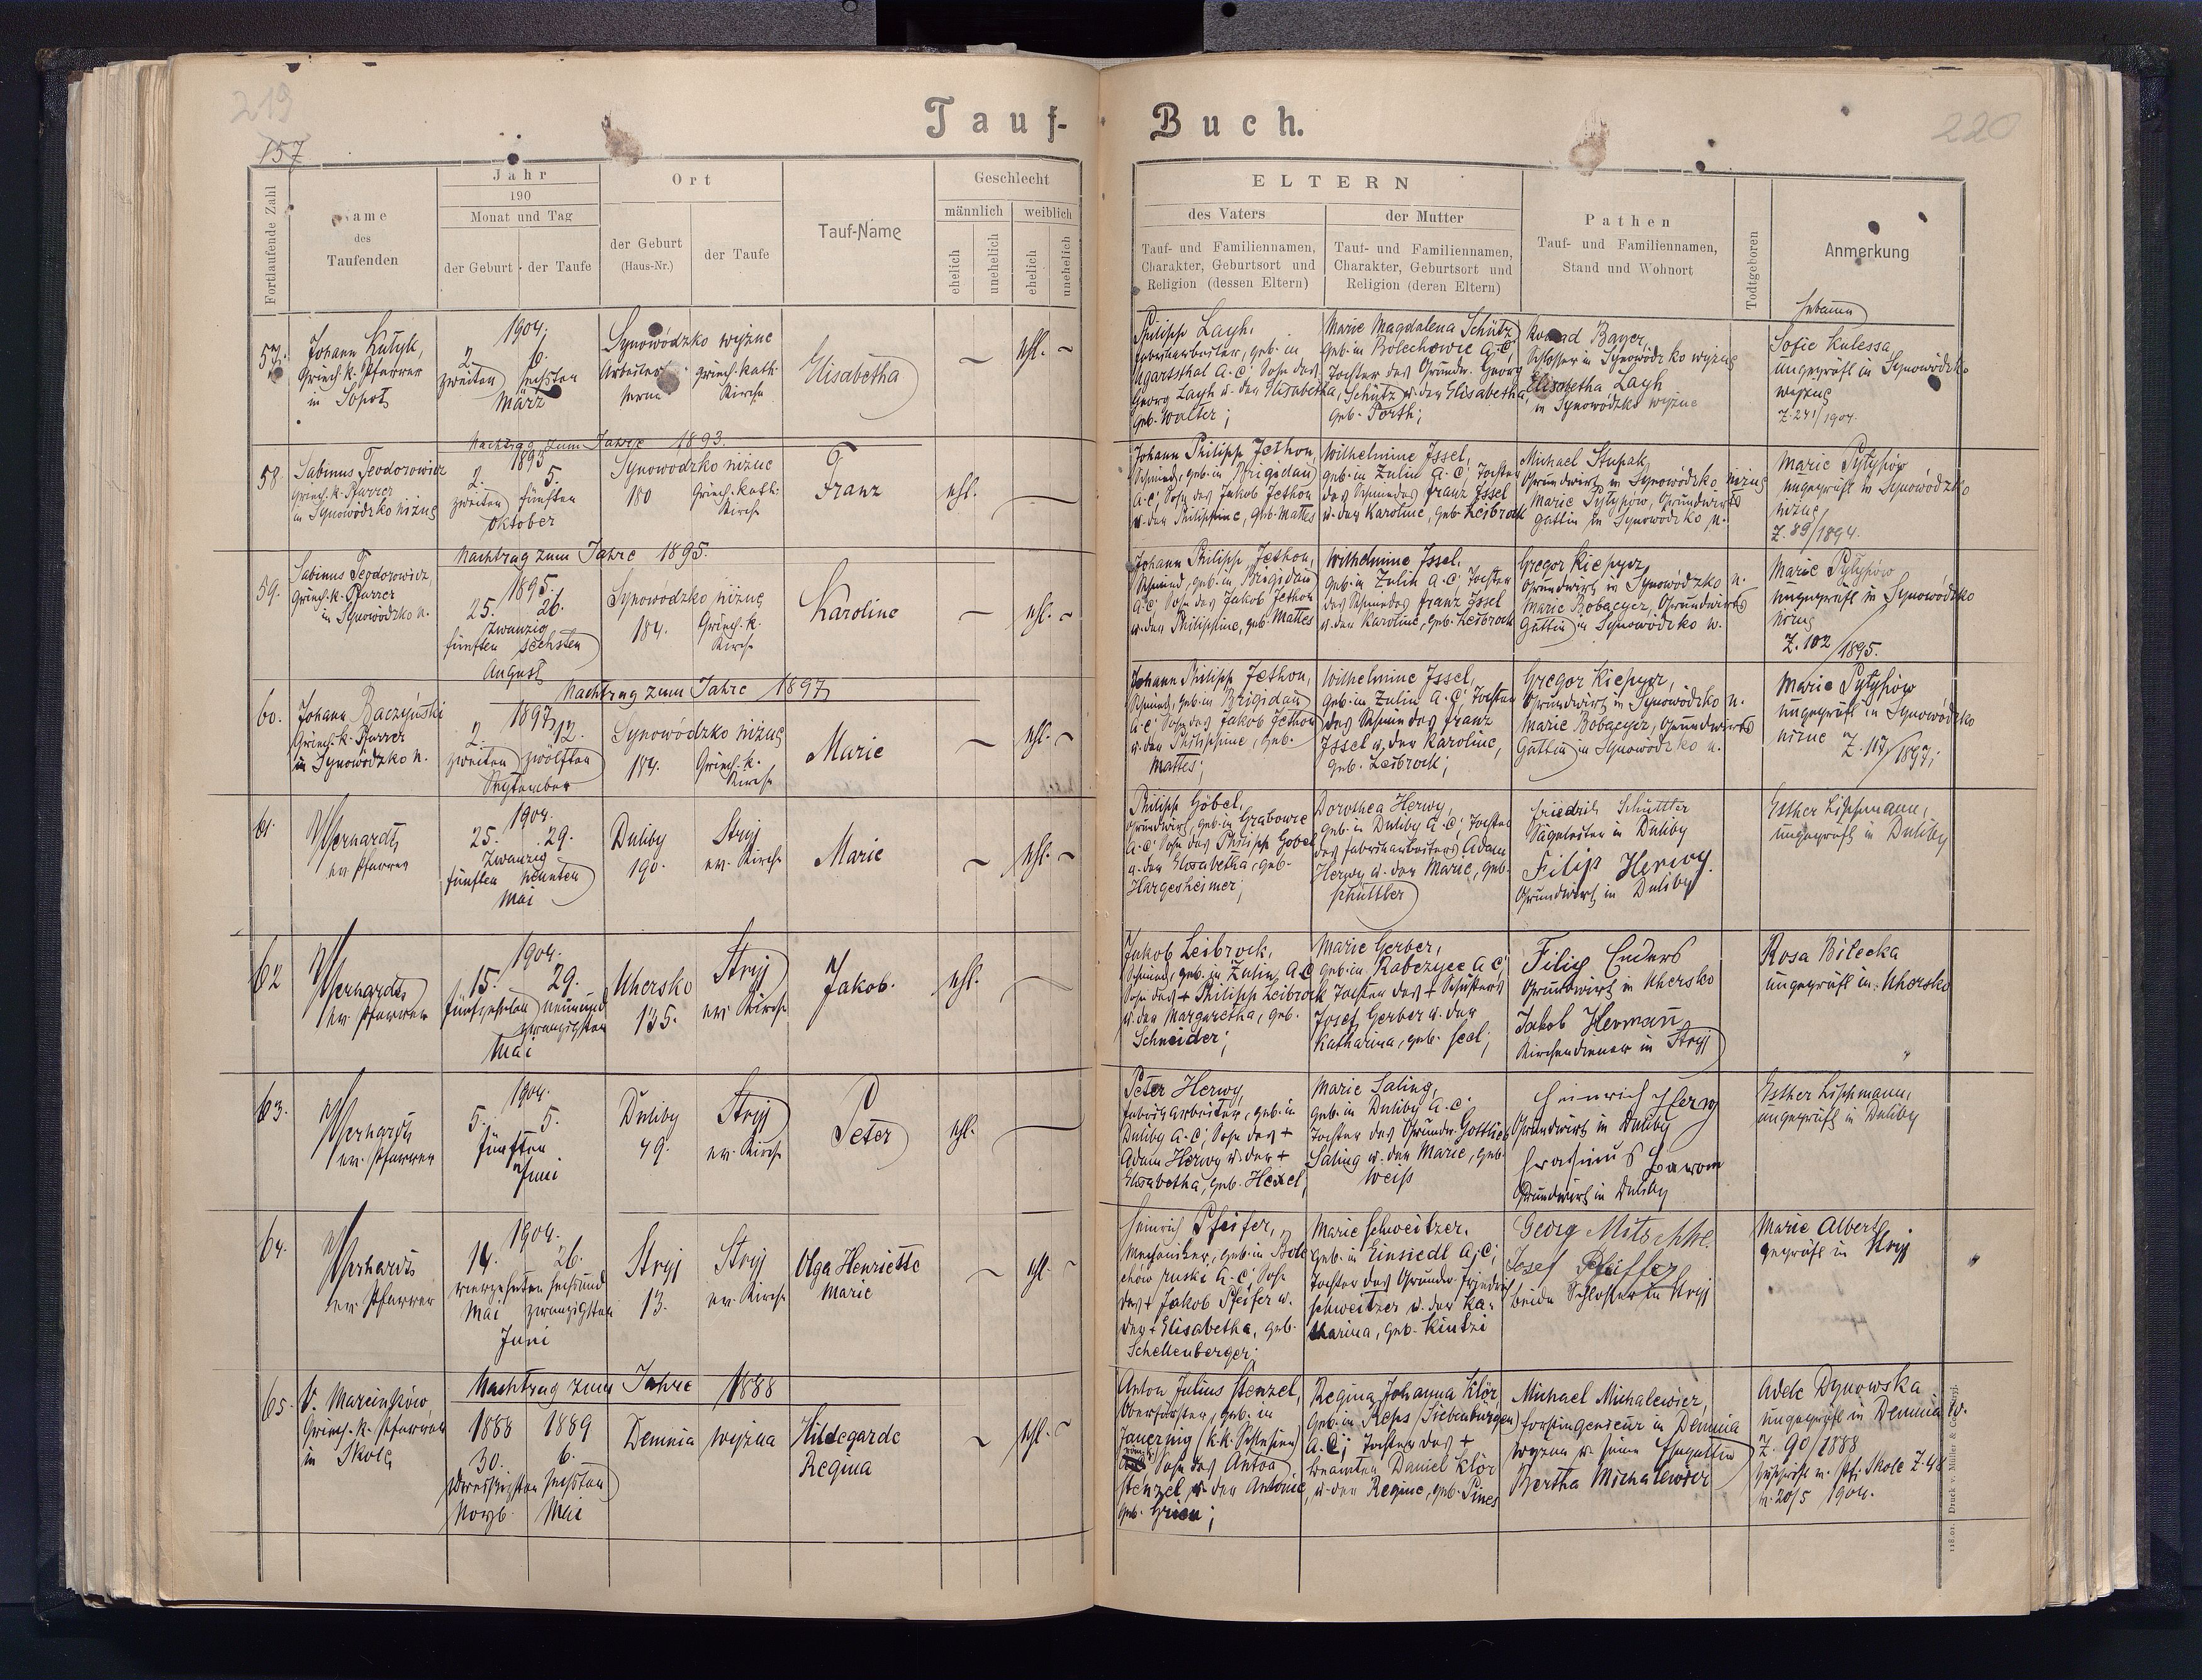 219
157
Tauf-
Buch.
220
Fortlaufende Zahl
Name
des
Taufenden
Jahr
190
Monat und Tag
der Geburt
der Taufe
Ort
der Geburt
(Haus-Nr.)
der Taufe
Tauf-Name
Geschlecht
männlich
weiblich
ehelich
unehelich
ehelich
unehelich
ELTERN
des Vaters
Tauf- und Familiennamen,
Charakter, Geburtsort und
Religion (dessen Eltern)
der Mutter
Tauf- und Familiennamen,
Charakter, Geburtsort und
Religion (deren Eltern)
Pathen
Tauf- und Familiennamen,
Stand und Wohnort
Todtgeboren
Anmerkung
Hebamme
57.
Johann Kutyk,
Griech. k. Pfarrer
in Sopot
1904.
2. 6.
zweiten sechsten
März
Synowódzko wyżne
griech. kath.
Kirche
Elisabetha
ehl.
Philipp Layh,
Fabriksarbeiter, geb. in
Ugartsthal A.C. Sohn des
Georg Layh u. der Elisabetha,
geb. Walter;
Marie Magdalena Schütz,
geb. in Bolechowie A.C.
Tochter des Grundw. Georg
Schütz u. der Elisabetha,
geb. Porth;
Konrad Bayer,
Schlosser in Synowódzko wyżne
Elisabetha Layh
in Synowódzko wyżne
Sofie Kulessa
ungeprüft in Synowódzko
wyżne
Z. 241/1904.
Nachtrag zum Jahre 1893.
58.
Sabinus Teodorowicz
Griech. k. Pfarrer
in Synowódzko niżne
1893
2. 5.
zweiten fünften
Oktober
Synowodzko niżne
180
Griech. kath.
Kirche
Franz
ehl.
Johann Philipp Jethon,
Schmied, geb. in Brigidau
A.C. Sohn des Jakob Jethon
u. der Philippine, geb. Mattes
Wilhelmine Issel,
geb. in Zulin A.C. Tochter
des Schmiedes Franz Issel
u. der Karoline, geb. Leibrock
Michael Stupak,
Grundwirt in Synowódzko niżne
Marie Pytypiów, Grundwirts
gattin in Synowódzko n.
Marie Pytypiów
ungeprüft in Synowódzko
niżne
Z. 89/1894.
Nachtrag zum Jahre 1895.
59.
Sabinus Teodorowicz,
Griech. k. Pfarrer
in Synowódzko n.
1895.
25. 26.
zwanzig
fünften sechsten
August
Synowodzko niżne
184.
Griech. k.
Kirche
Karoline
ehl.
Johann Philipp Jethon,
Schmied, geb. in Brigidau
A.C. Sohn des Jakob Jethon
u. der Philippine, geb. Mattes
Wilhelmine Issel,
geb. in Zulin A.C. Tochter
des Schmiedes Franz Issel
u. der Karoline, geb. Leibrock
Gregor Kiepyrz,
Grundwirt in Synowódzko n.
Marie Bobaczyz, Grundwirts
Gattin in Synowódzko n.
Marie Pytypiów
ungeprüft in Synowódzko
niżne
Z. 102/1895.
Nachtrag zum Jahre 1897
60.
Johann Baczyński
Griech. k. Pfarrer
in Synowódzko n.
1897
2. 12.
zweiten zwölften
September
Synowódzko niżne
184.
Griech. k.
Kirche
Marie
ehl.
Johann Philipp Jethon,
Schmied, geb. in Brigidau
A.C. Sohn des Jakob Jethon
u. der Philippine, geb.
Mattes;
Wilhelmine Issel,
geb. in Zulin A.C. Tochter
des Schmiedes Franz
Issel u. der Karoline,
geb. Leibrock;
Gregor Kiepyrz,
Grundwirt in Synowódzko n.
Marie Bobaczyz, Grundwirts
Gattin in Synowódzko n.
Marie Pytypiów
ungeprüft in Synowódzko
niżne Z. 117/1897;
61.
ev. Pfarrer
1904.
25. 29.
zwanzig
fünften neunten
Mai
Duliby
190.
Stryj
ev. Kirche
Marie
ehl.
Philipp Göbel,
Grundwirt, geb. in Grabowce
A.C. Sohn des Philipp Göbel
u. der Elisabetha, geb.
Hargesheimer;
Dorothea Herwy,
geb. in Duliby A.C. Tochter
des Fabriksarbeiters Adam
Herwy u. der Marie, geb.
Schüttler
Friedrich Schüttler
Sägeleiter in Duliby
Filip Herwy.
Grundwirt in Duliby
Esther Lippmann,
ungeprüft in Duliby
62
ev. Pfarrer
1904.
15. 29.
fünfzehnten neunund
zwanzigsten
Mai
Uhersko
135.
Stryj
ev. Kirche
Jakob.
ehl.
Jakob Leibrock,
Schmied, geb. in Zulin, A.C.
Sohn des + Philipp Leibrock
u. der Margaretha, geb.
Schneider;
Marie Gerber,
geb. in Rabczyce A.C.
Tochter des + Schusters
Josef Gerber u. der
Katharina, geb. Seel;
Filip Enders
Grundwirt in Uhersko
Jakob Hermann
Kirchendiener in Stryj
Rosa Bilecka
ungeprüft in Uhersko
63.
ev. Pfarrer
1904.
5. 5.
fünften
Juni
Duliby
49.
Stryj
ev. Kirche
Peter
ehl.
Peter Herwy,
Fabriksarbeiter, geb. in
Duliby A.C. Sohn des +
Adam Herwy u. der +
Elisabetha, geb. Hexel,
Marie Saling,
geb. in Duliby A.C.
Tochter des Grundw. Gottlieb
Saling u. der Marie, geb.
Weiss
Heinrich Herwy
Grundwirt in Duliby
Grundwirt in Duliby
Esther Lippmann,
ungeprüft in Duliby
64.
ev. Pfarrer
1904.
14. 26.
vierzehnten sechsund
Mai zwanzigsten
Juni
Stryj
13.
Stryj
ev. Kirche
Olga Henriette
Marie
ehl.
Heinrich Pfeifer,
Mechaniker, geb. in Bole
chów ruski A.C. Sohn
des + Jakob Pfeifer u.
der + Elisabetha, geb.
Schellenberger;
Marie Schweitzer,
geb. in Einsiedl A.C.
Tochter des Grundw. Friedrich
Schweitzer u. der Ka-
tharina, geb. Kintzi
Georg Mitschke.
Josef Pfeiffer
beide Schlosser in Stryj
Marie Albert
geprüft in Stryj
65.
V. Marcinków,
Griech. k. Pfarrer
in Skole
Nachtrag zum Jahre 1888
1888 1889
30. 6.
dreissigsten sechsten
Novb. Mai
Demnia wyżna
Hildegarde
Regina
ehl.
Anton Julius Stenzel,
Oberförster, geb. in
Jauernig (k.k. Schlesien)
Sohn des Anton
Stenzel u. der Antonie,
geb. Grien;
Regina Johanna Klör,
geb. in Reps (Siebenbürgen)
A.C; Tochter des +
Beamten Daniel Klör
u. der Regine, geb. Pines
Michael Michalewicz,
Forstingenieur in Demnia
wyżna u. seine Ehegattin
Bertha Michalewicz
Adele Dynowska
ungeprüft in Demnia w.
Z. 90/1888
Zuschrift v. Pf. Skole Z. 48
v. 20/5 1904.
118.01. Druck v. Müller &